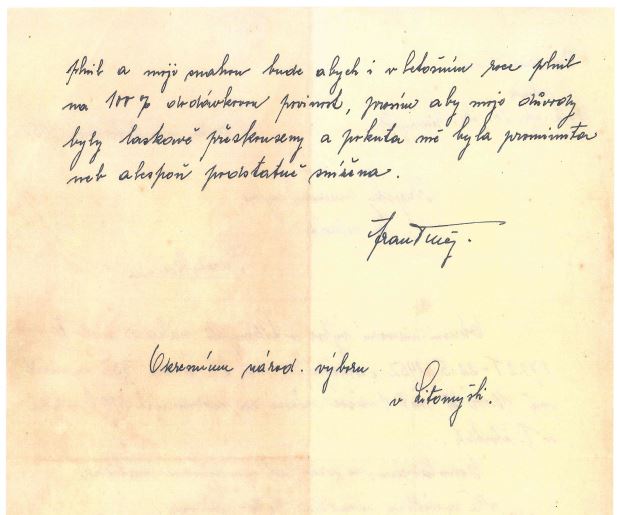 plnil a mojí snahou bude abych i v letošním roce plnil
na 100 % dodávkovou povinost, prosím aby moje důvody
byly laskavě přezkouseny a pokuta mě byla prominuta
neb alespoň podstatně snížena.
Okresnímu národ. výboru
v Litomyšli.